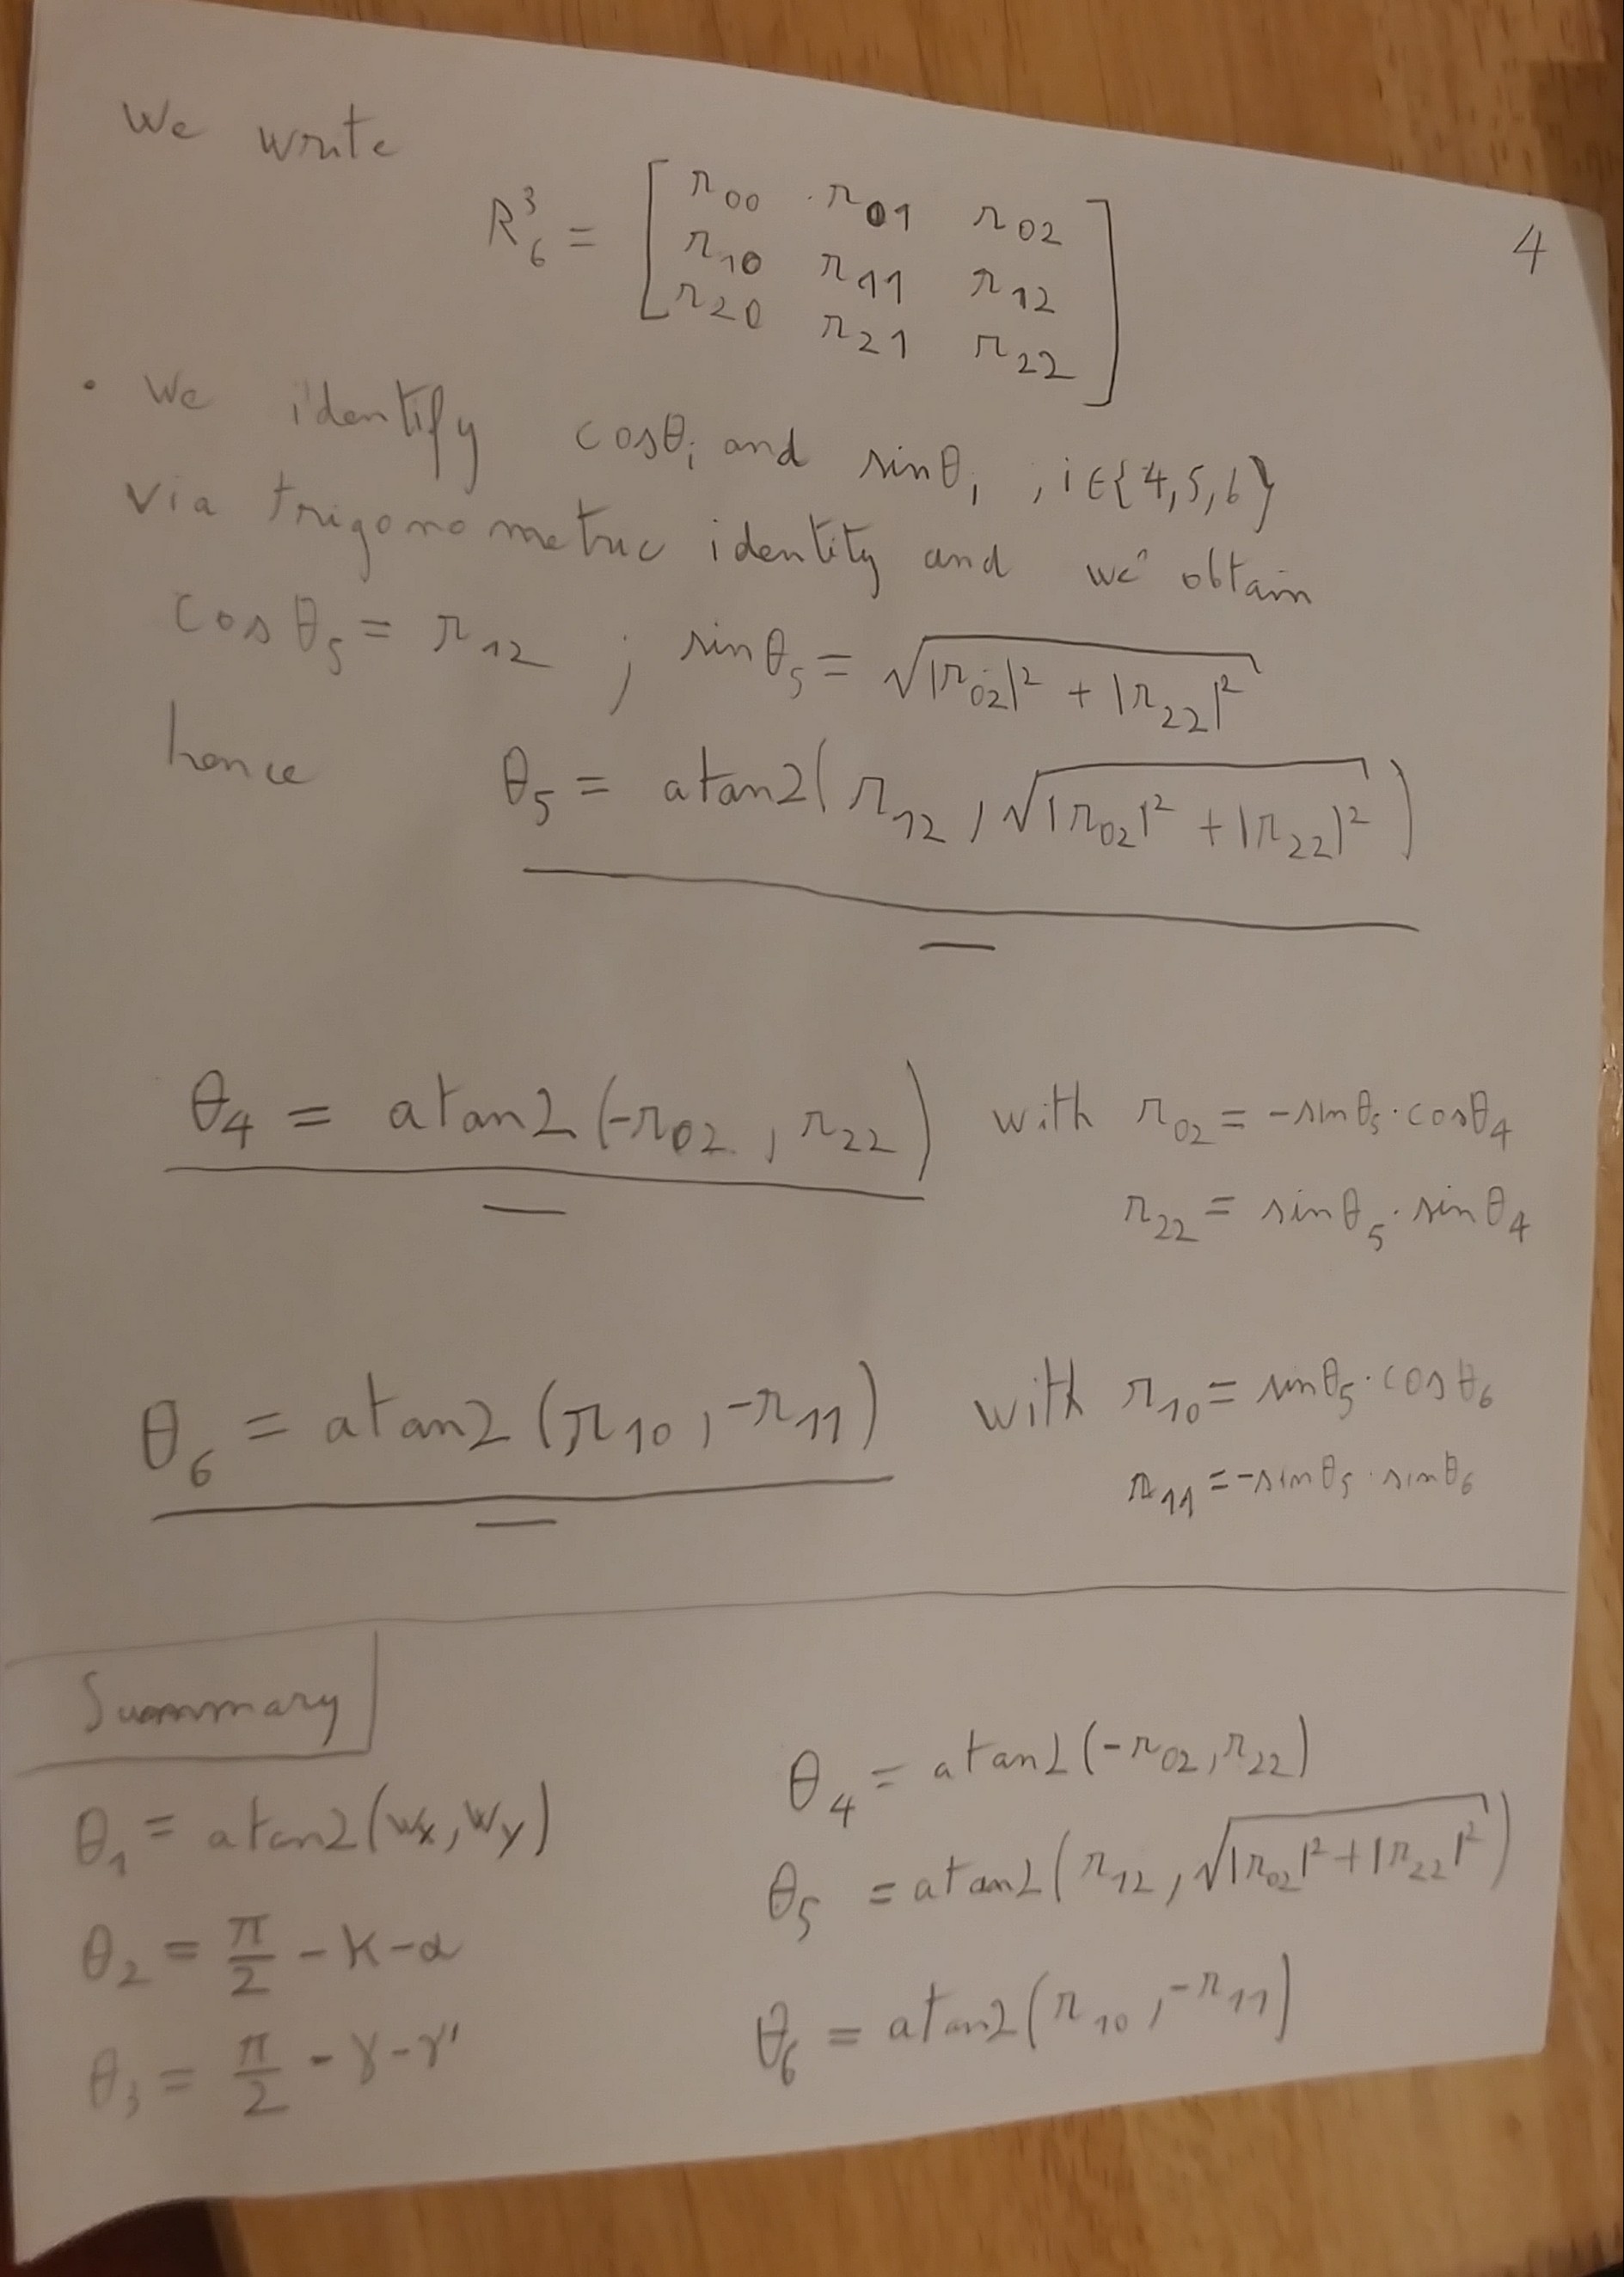 We write
4
R³₆ = [ r₀₀ r₀₁ r₀₂
r₁₀ r₁₁ r₁₂
r₂₀ r₂₁ r₂₂ ]
• We identify cosθᵢ and sinθᵢ , i∈{4,5,6}
via trigonometric identity and we obtain
cosθ₅ = r₁₂ ; sinθ₅ = √(|r₀₂|² + |r₂₂|²)
hence θ₅ = atan2(r₁₂, √(|r₀₂|² + |r₂₂|²))
θ₄ = atan2(-r₀₂, r₂₂) with r₀₂ = -sinθ₅·cosθ₄
r₂₂ = sinθ₅·sinθ₄
θ₆ = atan2(r₁₀, -r₁₁) with r₁₀ = sinθ₅·cosθ₆
r₁₁ = -sinθ₅·sinθ₆
Summary
θ₁ = atan2(Wx, Wy)
θ₂ = π/2 - K - α
θ₃ = π/2 - γ - γ'
θ₄ = atan2(-r₀₂, r₂₂)
θ₅ = atan2(r₁₂, √(|r₀₂|² + |r₂₂|²))
θ₆ = atan2(r₁₀, -r₁₁)